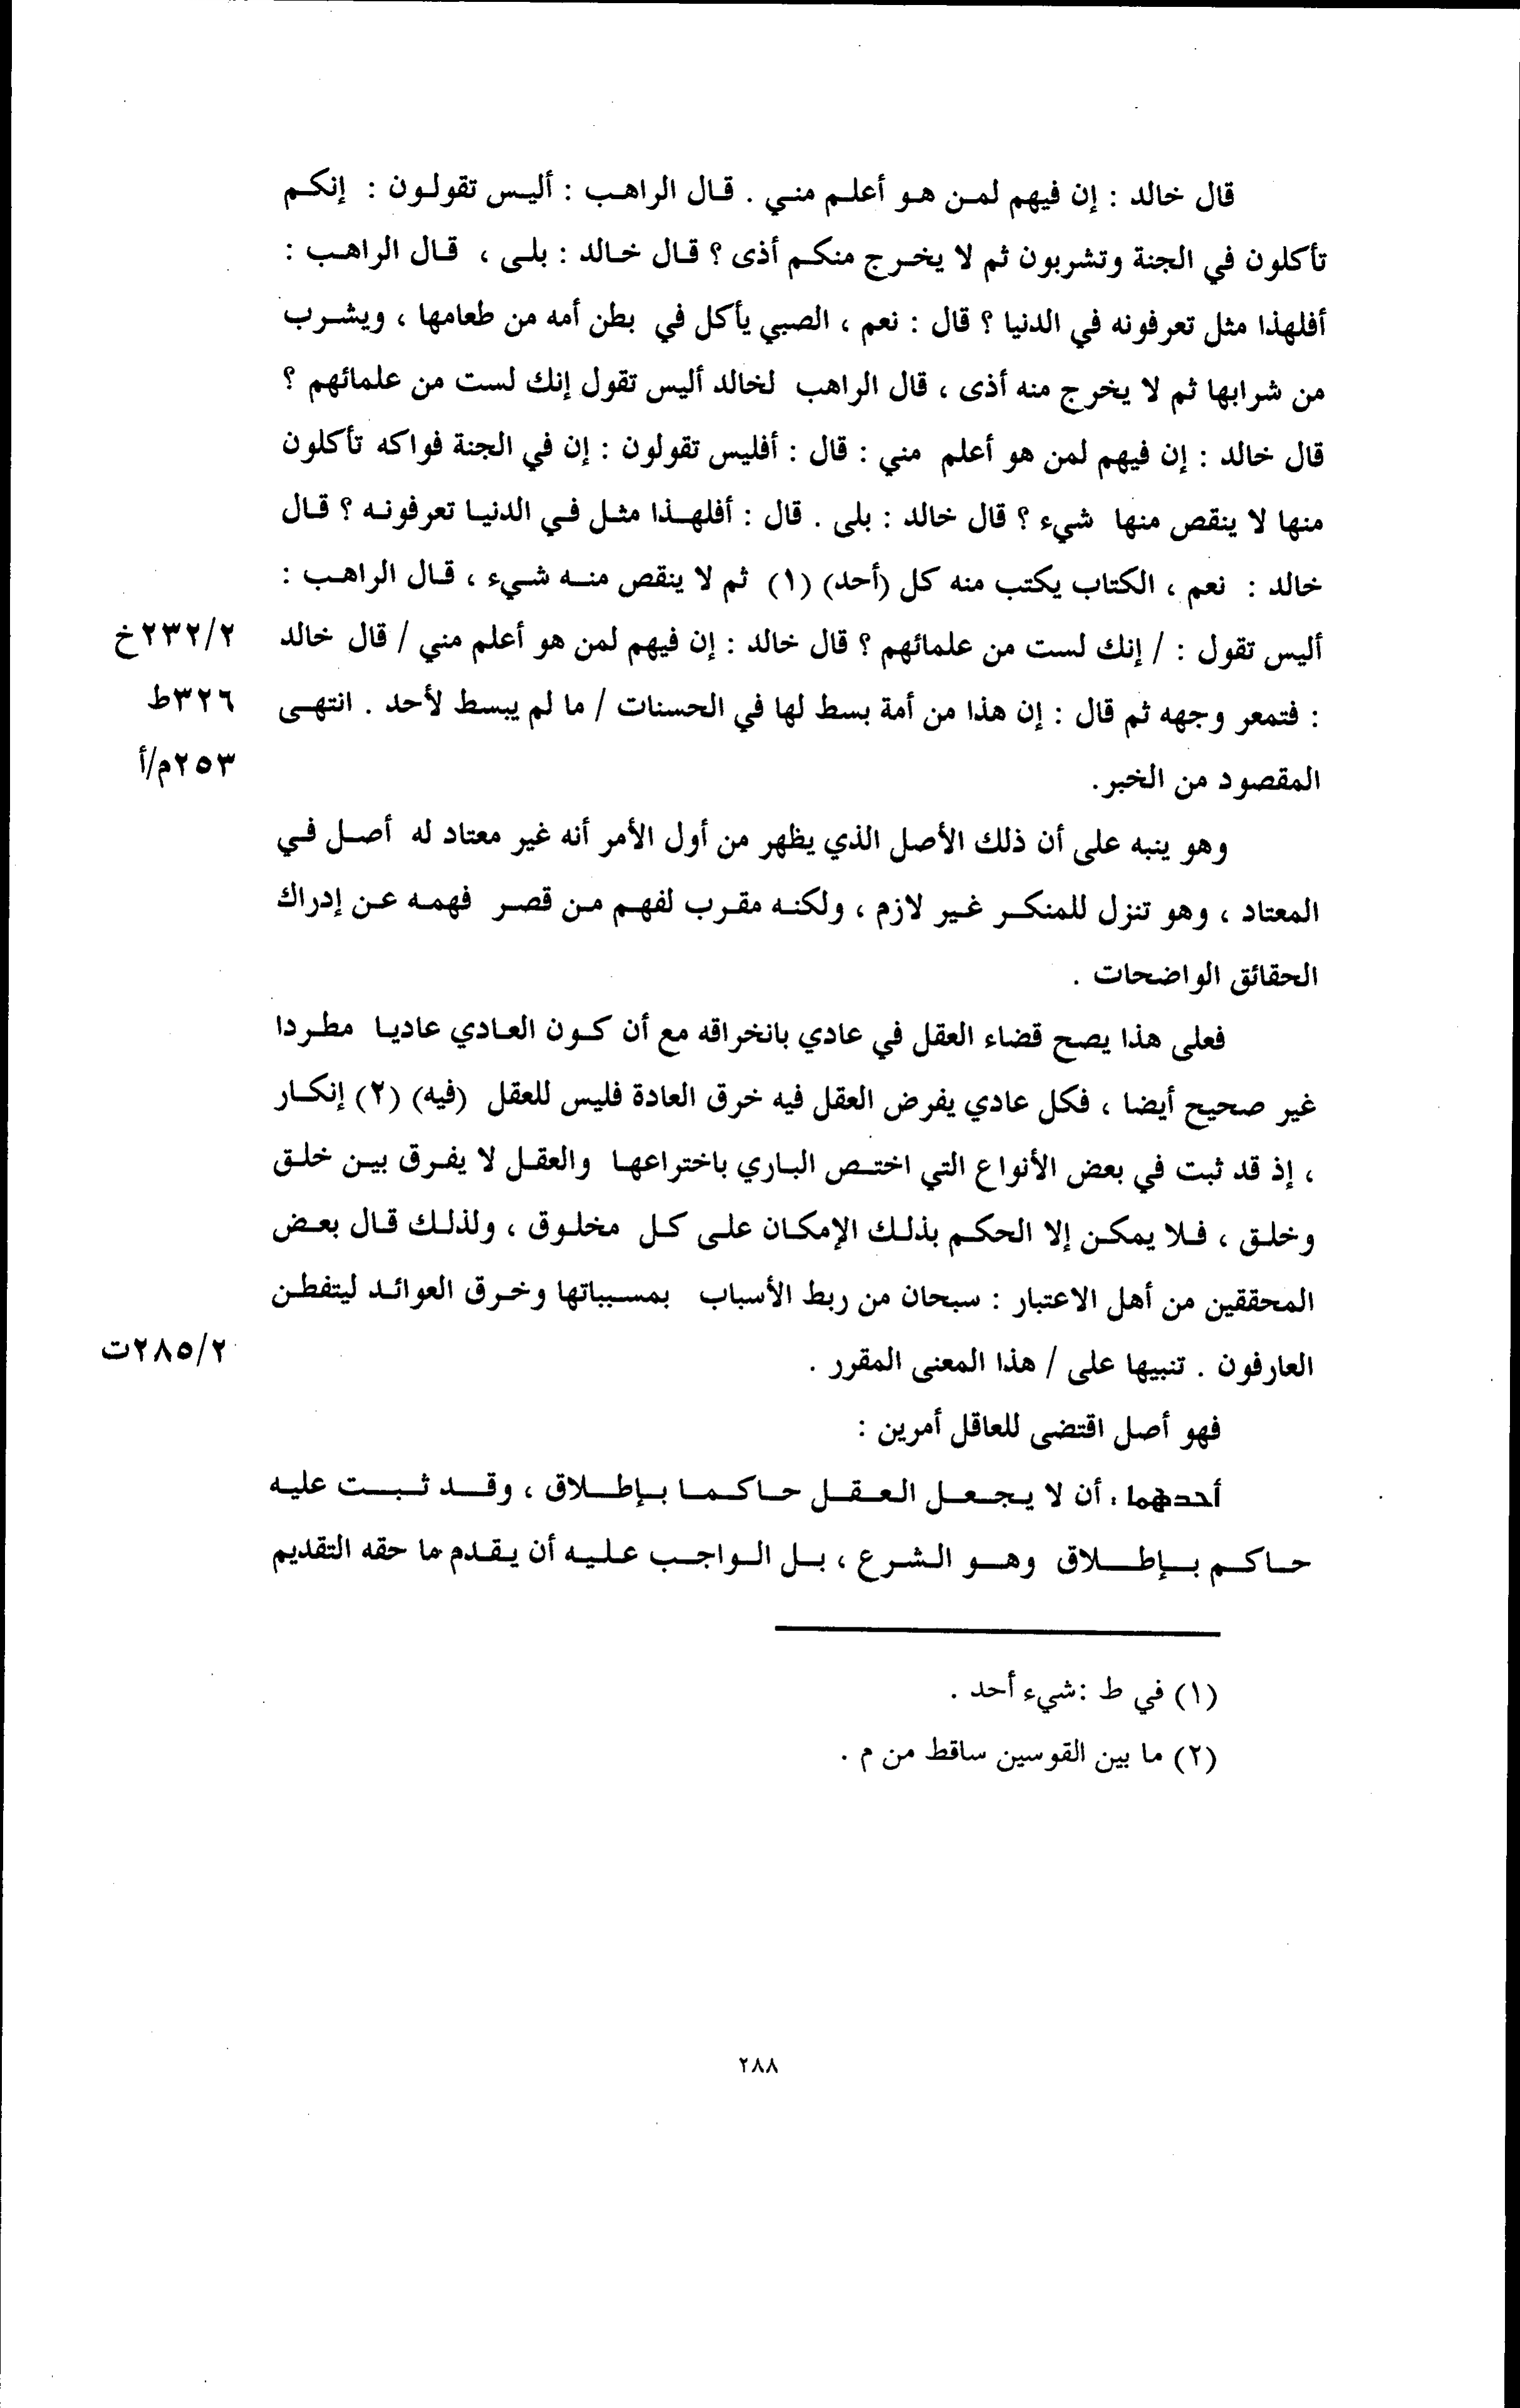 قال خالد : إن فيهم لمن هو أعلم مني . قال الراهب : أليس تقولون : إنكم
تأكلون في الجنة وتشربون ثم لا يخرج منكم أذى ؟ قال خالد : بلى ، قال الراهب :
أفلهذا مثل تعرفونه في الدنيا ؟ قال : نعم ، الصبي يأكل في بطن أمه من طعامها ، ويشرب
من شرابها ثم لا يخرج منه أذى ، قال الراهب لخالد أليس تقول إنك لست من علمائهم ؟
قال خالد : إن فيهم لمن هو أعلم مني : قال : أفليس تقولون : إن في الجنة فواكه تأكلون
منها لا ينقص منها شيء ؟ قال خالد : بلى . قال : أفلهذا مثل في الدنيا تعرفونه ؟ قال
خالد : نعم ، الكتاب يكتب منه كل (أحد) (١) ثم لا ينقص منه شيء ، قال الراهب :
أليس تقول : / إنك لست من علمائهم ؟ قال خالد : إن فيهم لمن هو أعلم مني / قال خالد
٢٣٢/٢خ
: فتمعر وجهه ثم قال : إن هذا من أمة بسط لها في الحسنات / ما لم يبسط لأحد . انتهى
٣٢٦ط
المقصود من الخبر.
٢٥٣م/أ
وهو ينبه على أن ذلك الأصل الذي يظهر من أول الأمر أنه غير معتاد له أصل في
المعتاد ، وهو تنزل للمنكر غير لازم ، ولكنه مقرب لفهم من قصر فهمه عن إدراك
الحقائق الواضحات .
فعلى هذا يصح قضاء العقل في عادي بانخراقه مع أن كون العادي عاديا مطردا
غير صحيح أيضا ، فكل عادي يفرض العقل فيه خرق العادة فليس للعقل (فيه) (٢) إنكار
، إذ قد ثبت في بعض الأنواع التي اختص الباري باختراعها والعقل لا يفرق بين خلق
وخلق ، فلا يمكن إلا الحكم بذلك الإمكان على كل مخلوق ، ولذلك قال بعض
المحققين من أهل الاعتبار : سبحان من ربط الأسباب بمسبباتها وخرق العوائد ليتفطن
العارفون . تنبيها على / هذا المعنى المقرر .
٢٨٥/٢ت
فهو أصل اقتضى للعاقل أمرين :
أحدهما : أن لا يجعل العقل حاكما بإطلاق ، وقد ثبت عليه
حاكم بإطلاق وهو الشرع ، بل الواجب عليه أن يقدم ما حقه التقديم
(١) في ط :شيء أحد .
(٢) ما بين القوسين ساقط من م .
٢٨٨